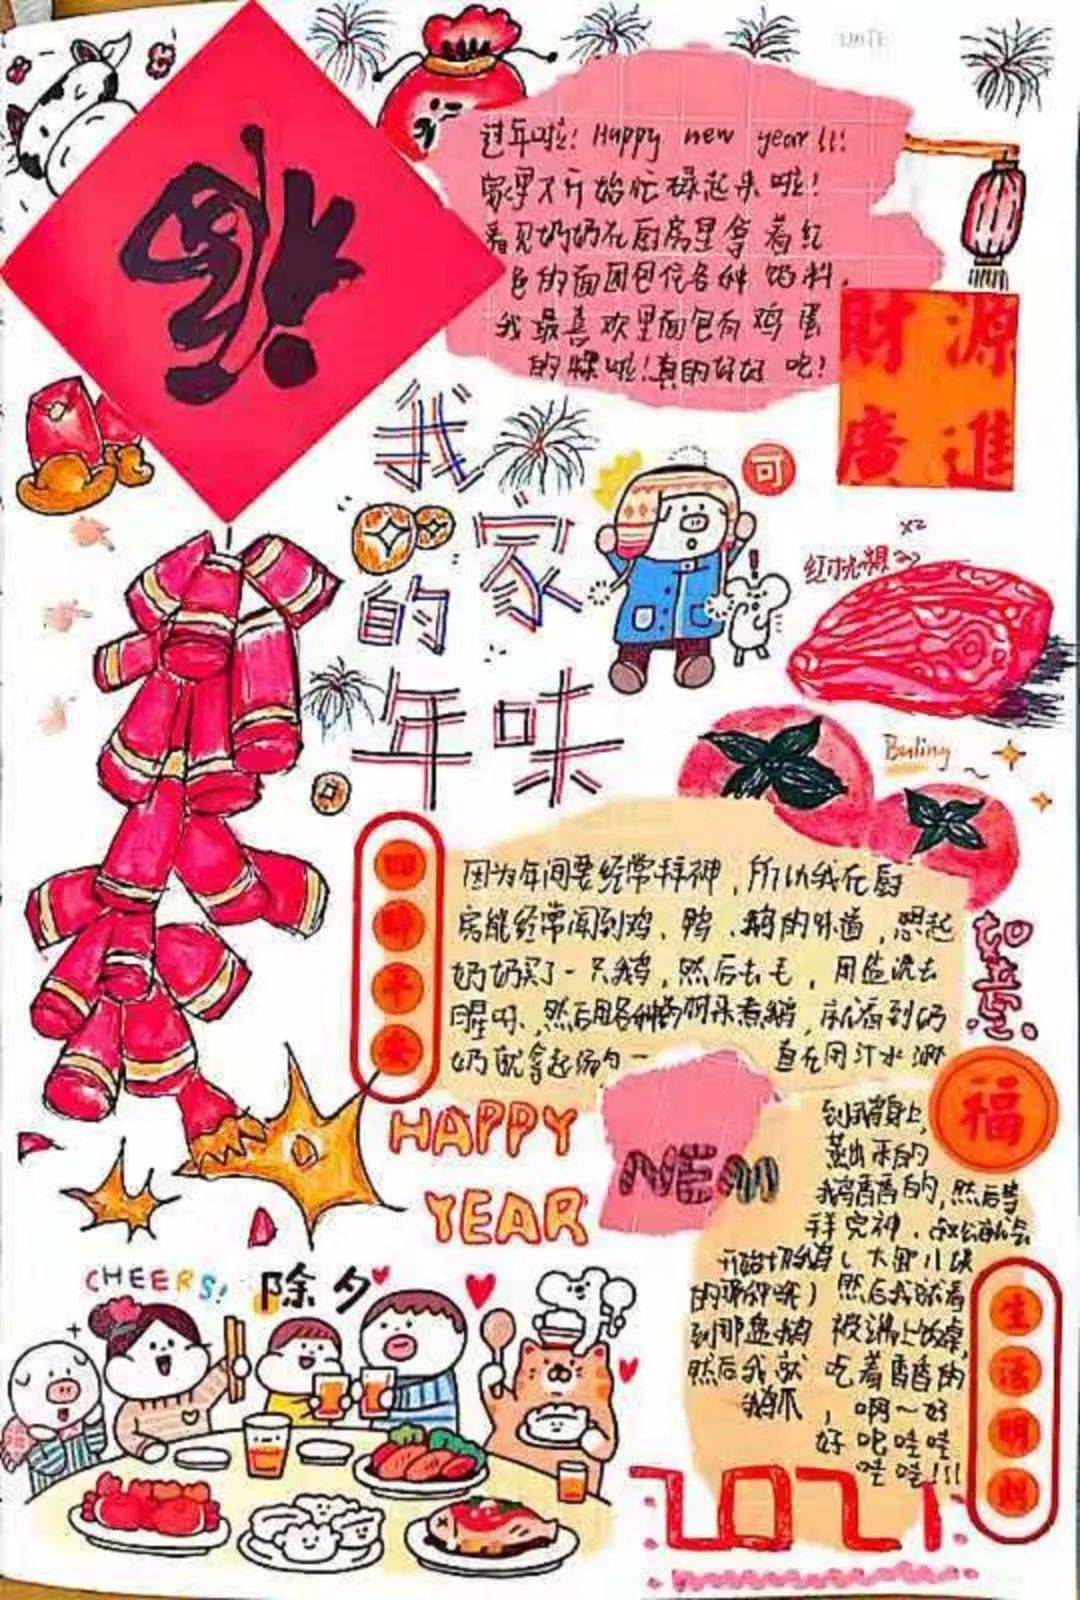 DATE
福
过年啦! Happy new year!!!
家里又开始忙碌起来啦!
看见奶奶在厨房里拿着红
色的面团包住各种馅料,
我最喜欢里面包有鸡蛋
的粿啦!真的好好吃!
財源
廣進
我家
的
年味
可
x2
红桃粿
Buling
因为年间要经常拜神,所以我在厨
房能经常闻到鸡、鸭、鹅的味道,想起
奶奶买了一只鹅,然后去毛,用盐洗去
腥味,然后用各种香料来煮鹅,就看到奶
奶就拿起汤勺一直在用汁水淋
到鹅身上,
蒸出来的
鹅香香的,然后等
拜完神,叔公就会
开始切鹅(大卸八块
的那种呢)然后我就看
到那盘鹅被端上饭桌,
然后我就吃着香香的
鹅爪,啊~好
好吃哇哇
哇哇!!!
如意
四
季
平
安
福
HAPPY
NEW
YEAR
CHEERS!
除夕
生
活
明
朗
2021